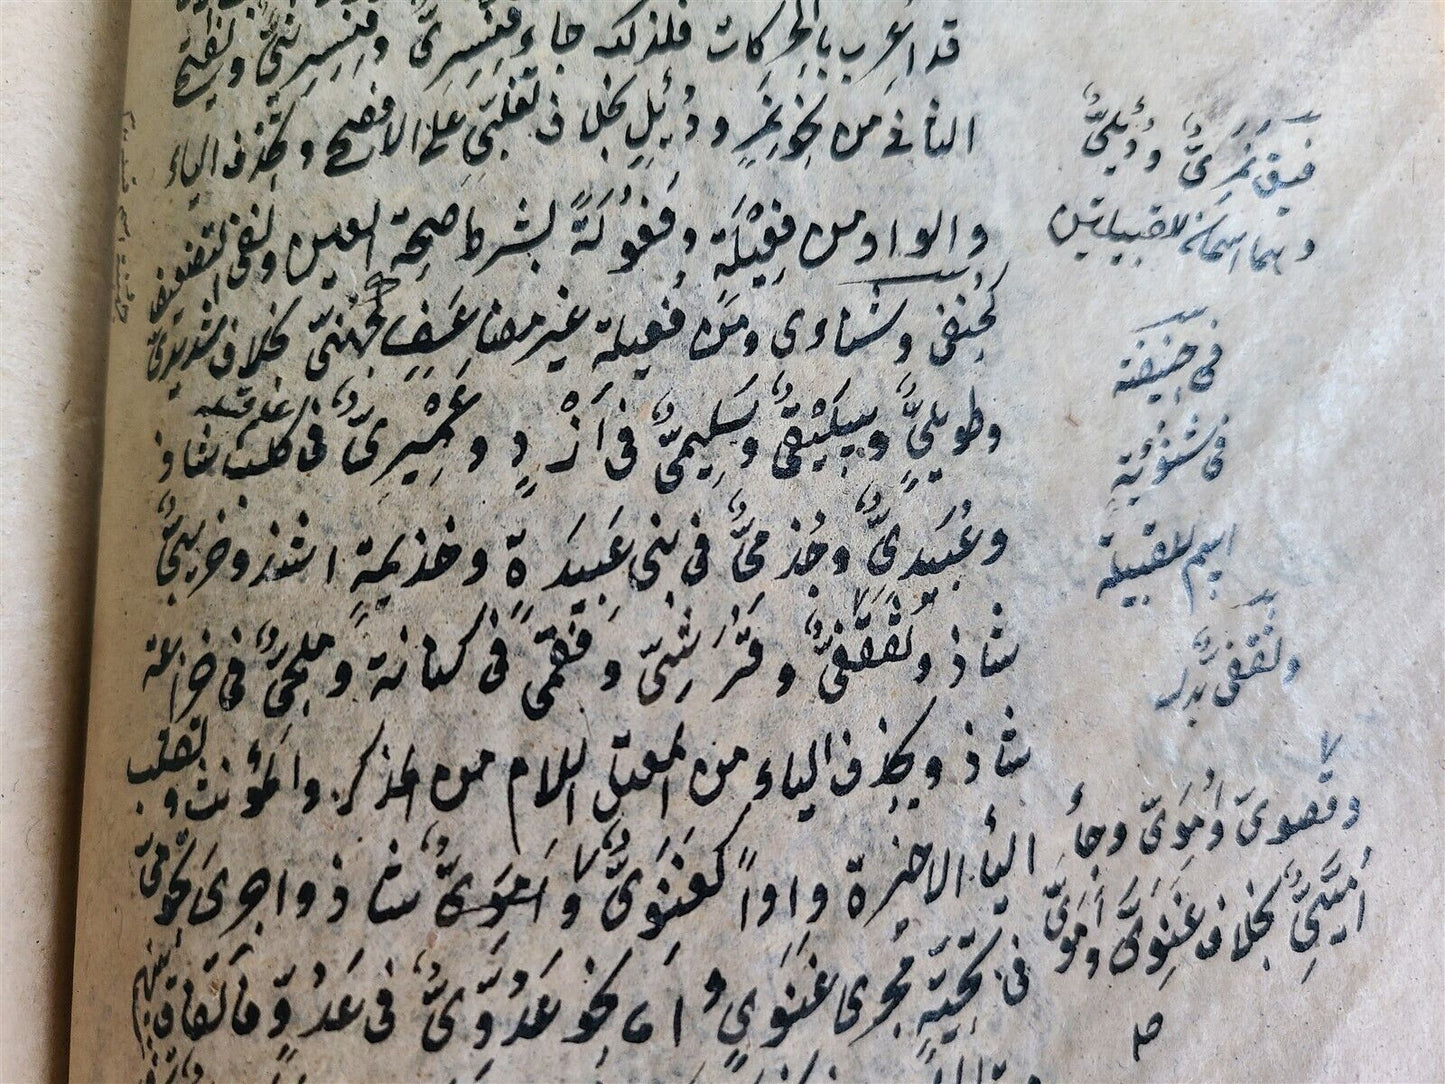 قد أعرب بالحركات فلذلك جاء قنسرى وقنسرينى ويفتح
الثانى من نحو نمر ودئل بخلاف تغلبى على الافصح وتحذف الياء
والواو من فعيلة وفعولة بشرط صحة العين ونفى التضعيف
كحنفى وشناءى ومن فعيلة غير مضاعف كجهنى بخلاف شديدى
وطويلى وسليقى وسليمى فى أزد وعميرى فى كلب شاذ
وعبيدى وجذمى فى بنى عبيدة وجذيمة اشذ وخريبى
شاذ وثقفى وقرشى وفقمى فى كنانة وملحى فى خزاعة
شاذ ويحذف الياء من المعتل اللام من المذكر والمؤنث وتقلب
الياء الاخيرة واوا كغنوى واموى شاذ واجرى تحوى
فى تحية مجرى غنوى واما نحو عدوى فى عدو فاتفاق
فيق نمرى ودئلى
وهما اسمان للقبيلتين
فى حنيفة
فى شنوئة
اسم للقبيلة
وثقفى بدل
وقصوى وأموى وجاء
أميى بخلاف غنوى وأموى
صح